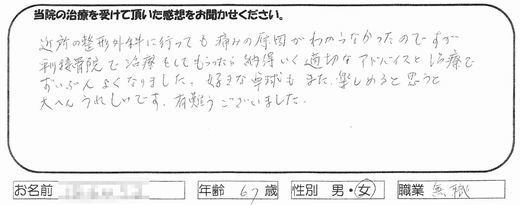 当院の治療を受けて頂いた感想をお聞かせください。
近所の整形外科に行っても痛みの原因がわからなかったのですが
接骨院で治療をしてもらったら納得いく適切なアドバイスと治療で
ずいぶんよくなりました。好きな卓球もまた楽しめると思うと
大へんうれしいです。有難うございました。
お名前 年齢 67 歳 性別 男・女 職業 無職